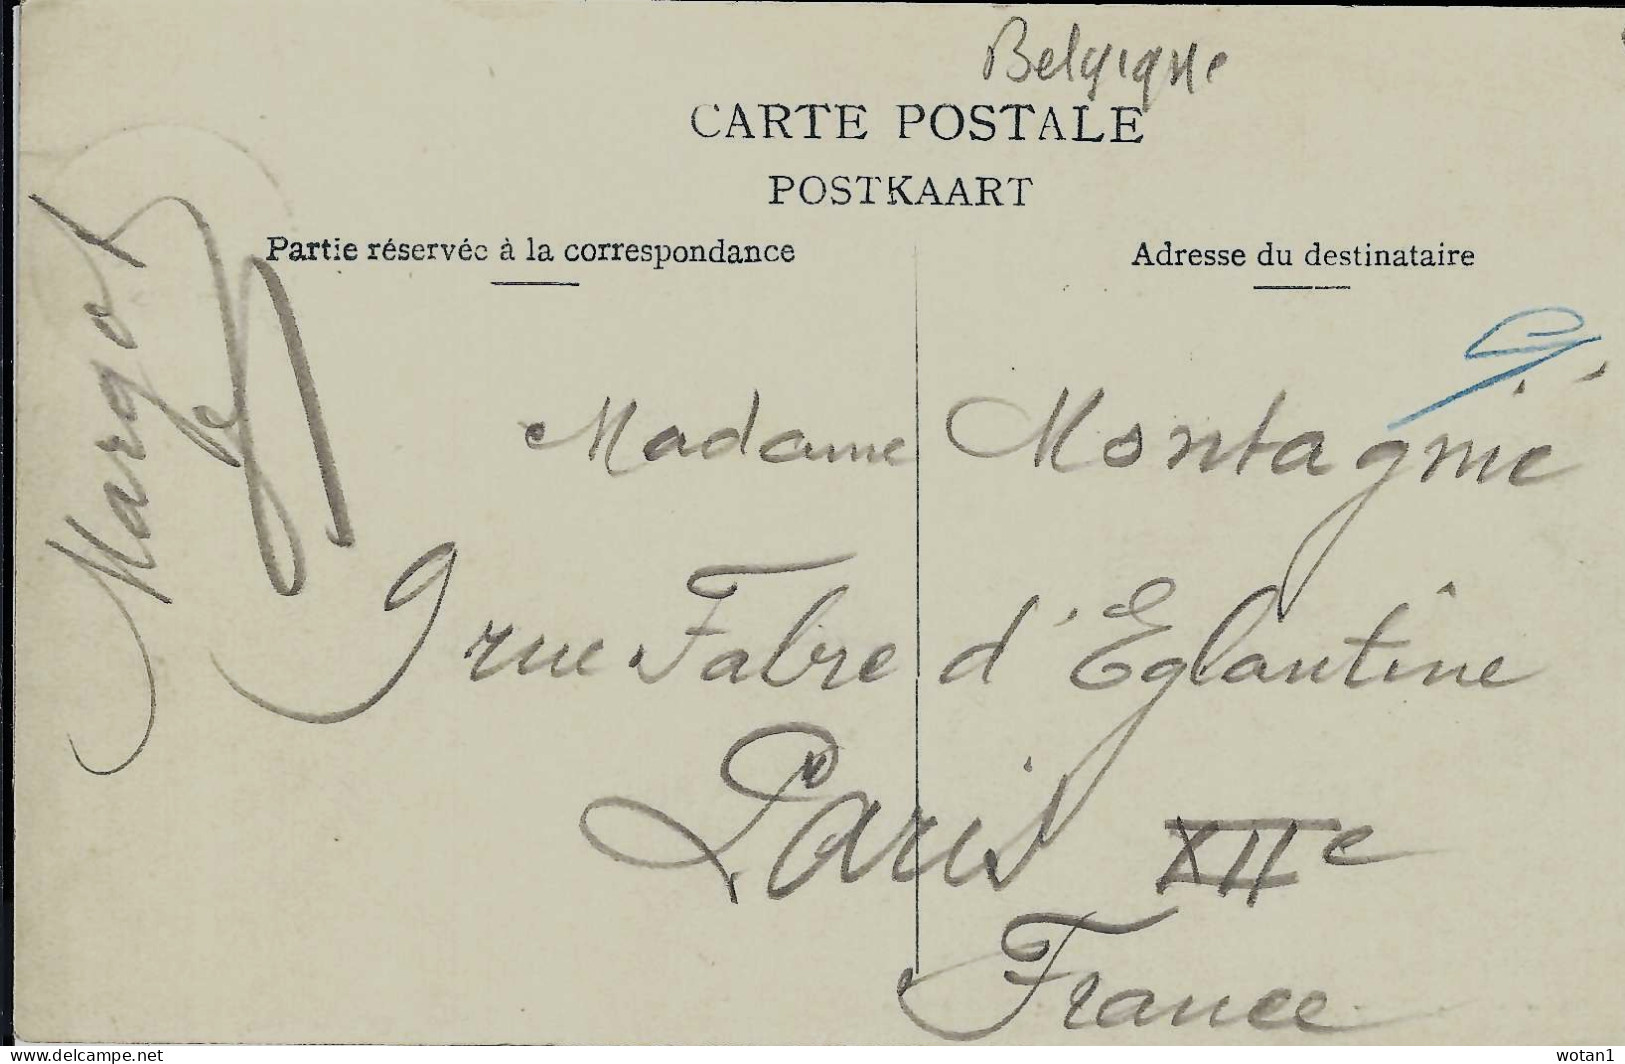 Belgique
CARTE POSTALE
POSTKAART
Partie réservée à la correspondance
Adresse du destinataire
Margot
Madame Montagnié
9 rue Fabre d'Eglantine
Paris XIIe
France
www.delcampe.net
wotan1